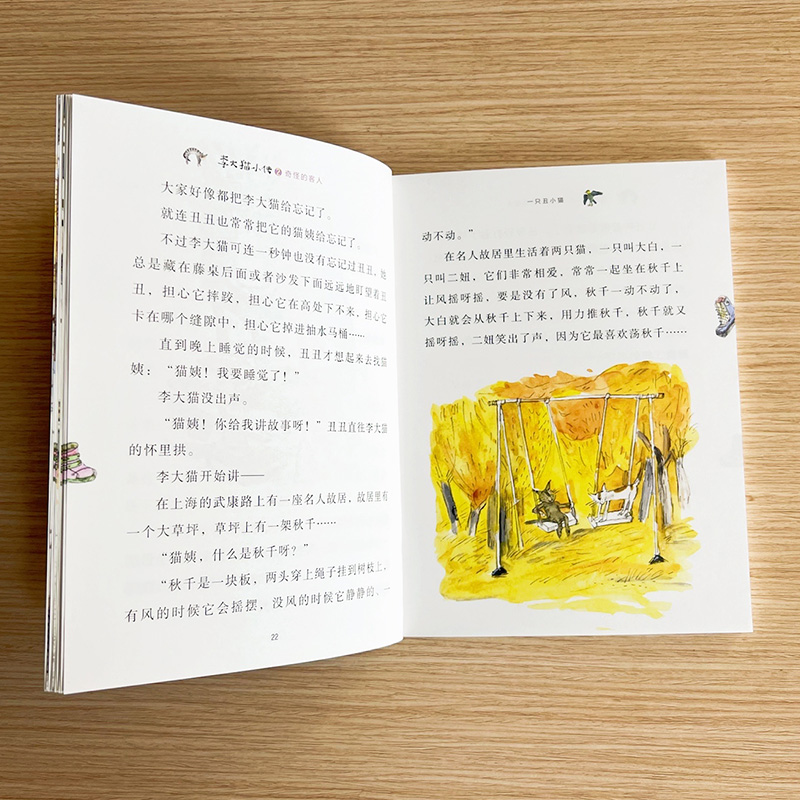 李大猫小传 2 奇怪的客人
大家好像都把李大猫给忘记了。
就连丑丑也常常把它的猫姨给忘记了。
不过李大猫可连一秒钟也没有忘记过丑丑，她
总是藏在藤桌后面或者沙发下面远远地盯望着丑
丑，担心它摔跤，担心它在高处下不来，担心它
卡在哪个缝隙中，担心它掉进抽水马桶……
直到晚上睡觉的时候，丑丑才想起来去找猫
姨：“猫姨！我要睡觉了！”
李大猫没出声。
“猫姨！你给我讲故事呀！”丑丑直往李大猫
的怀里拱。
李大猫开始讲——
在上海的武康路上有一座名人故居，故居里有
一个大草坪，草坪上有一架秋千……
“猫姨，什么是秋千呀？”
“秋千是一块板，两头穿上绳子挂到树枝上，
有风的时候它会摇摆，没风的时候它静静的、一
22
一只丑小猫
动不动。”
在名人故居里生活着两只猫，一只叫大白，一
只叫二妞，它们非常相爱，常常一起坐在秋千上
让风摇呀摇，要是没有了风，秋千一动不动了，
大白就会从秋千上下来，用力推秋千，秋千就又
摇呀摇，二妞笑出了声，因为它最喜欢荡秋千……